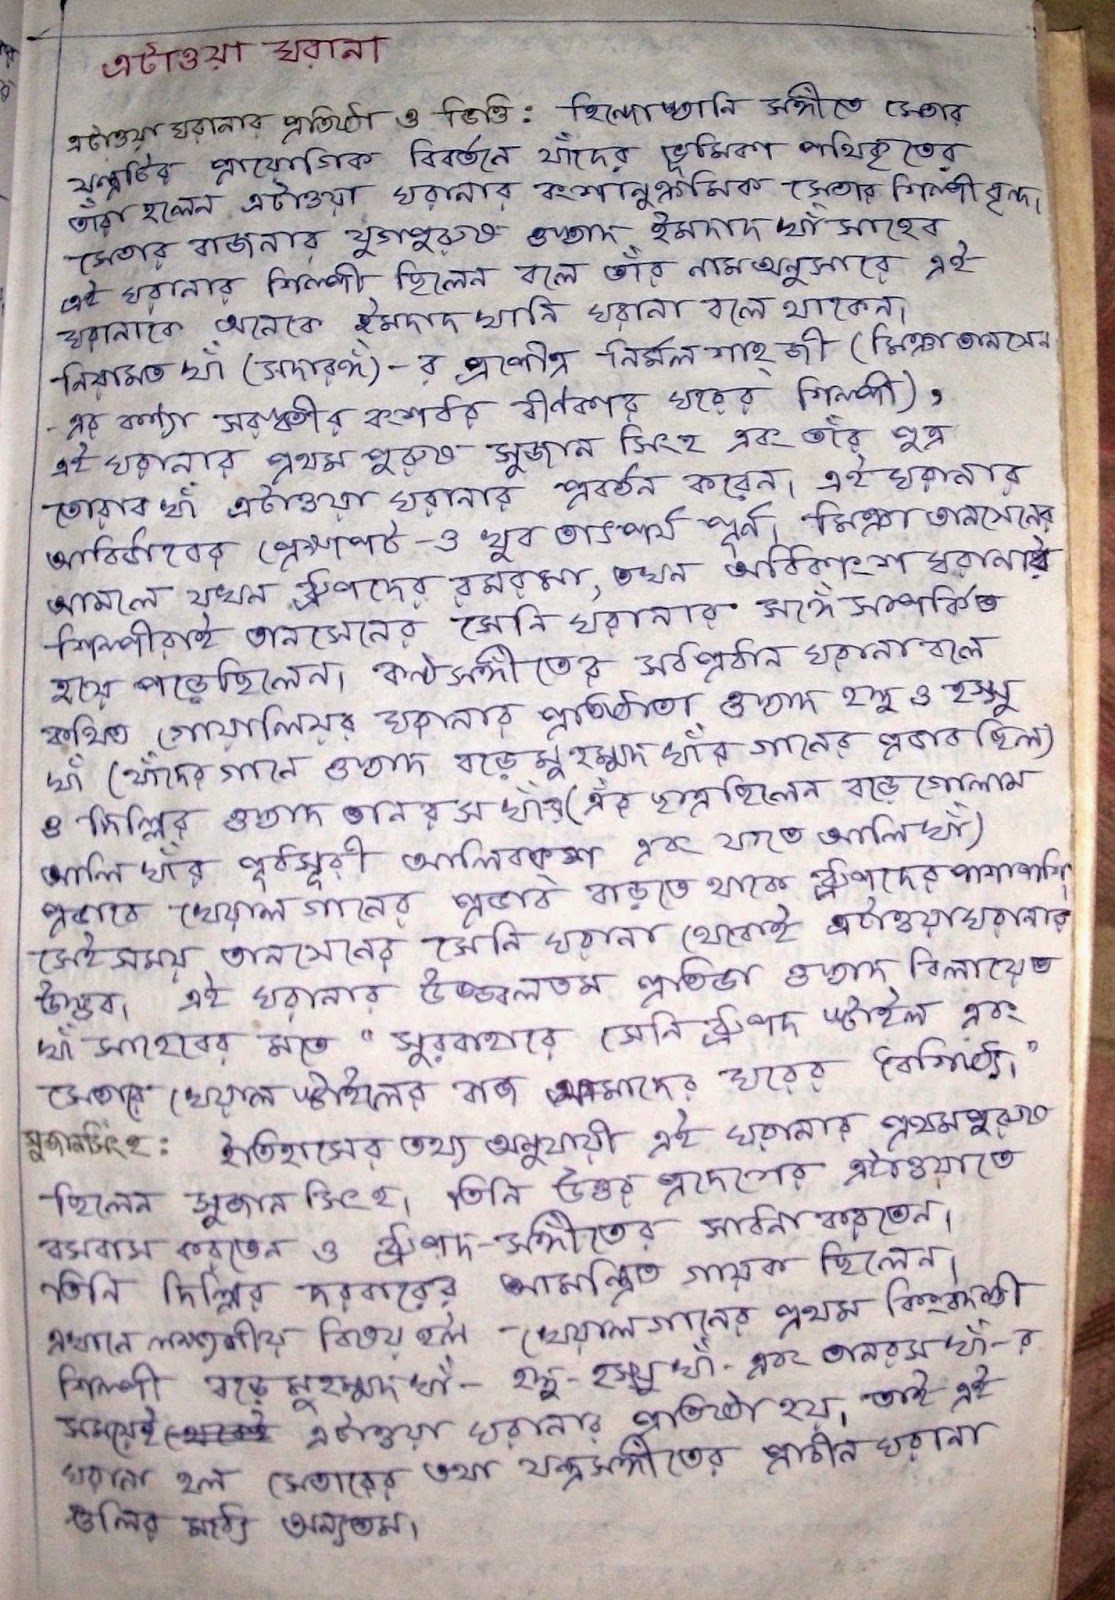 এটাওয়া ঘরানা
এটাওয়া ঘরানার প্রতিষ্ঠা ও ভিত্তি : হিন্দোস্তানি সঙ্গীতে সেতার
যন্ত্রটির প্রায়োগিক বিবর্তনে যাঁদের ভূমিকা পথিকৃতের
তাঁরা হলেন এটাওয়া ঘরানার বংশানুক্রমিক সেতার শিল্পীবৃন্দ।
সেতার বাজনার যুগপুরুষ ওস্তাদ ইমদাদ খাঁ সাহেব
এই ঘরানার শিল্পী ছিলেন বলে তাঁর নামঅনুসারে এই
ঘরানাকে অনেকে ইমদাদখানি ঘরানা বলে থাকেন।
নিয়ামত খাঁ (সদারঙ্গ)-র প্রপৌত্র নির্মল শাহ্ জী (মিঞা তানসেন
-এর কন্যা সরস্বতীর বংশধর বীণকার ঘরের শিল্পী),
এই ঘরানার প্রথম পুরুষ সুজান সিংহ এবং তাঁর পুত্র
তোরাব খাঁ এটাওয়া ঘরানার প্রবর্তন করেন। এই ঘরানার
আবির্ভাবের প্রেক্ষাপট-ও খুব তাৎপর্য পূর্ণ। মিঞা তানসেনের
আমলে যখন ধ্রুপদের রমরমা, তখন অধিকাংশ ঘরানার
শিল্পীরাই তানসেনের সেনি ঘরানার সঙ্গে সম্পর্কিত
হয়ে পড়েছিলেন। কণ্ঠসঙ্গীতের সর্বপ্রধান ঘরানা বলে
কথিত গোয়ালিয়র ঘরানার প্রতিষ্ঠাতা ওস্তাদ হদ্দু ও হস্সু
খাঁ (যাঁদের গানে ওস্তাদ বড়ে মুহম্মদ খাঁর গানের প্রভাব ছিল)
ও দিল্লির ওস্তাদ তানরস খাঁও (এঁর ছাত্র ছিলেন বড়ে গোলাম
আলি খাঁর পূর্বসূরী আলিবকশ এবং ফাতে আলি খাঁ)
প্রভাবে খেয়াল গানের প্রভাব বাড়তে থাকে ধ্রুপদের পাশাপাশি
সেই সময় তানসেনের সেনি ঘরানা থেকেই এটাওয়া ঘরানার
উদ্ভব। এই ঘরানার উজ্জ্বলতম প্রতিভা ওস্তাদ বিলায়েত
খাঁ সাহেবের মতে "সুরবাহারে সেনি ধ্রুপদ স্টাইল এবং
সেতারে খেয়াল স্টাইলের বাজ আমাদের ঘরের বৈশিষ্ট্য।"
সুজানসিংহ : ইতিহাসের তথ্য অনুযায়ী এই ঘরানার প্রথমপুরুষ
ছিলেন সুজান সিংহ। তিনি উত্তর প্রদেশের এটাওয়াতে
বসবাস করতেন ও ধ্রুপদ-সঙ্গীতের সাধনা করতেন।
তিনি দিল্লির দরবারের আমন্ত্রিত গায়ক ছিলেন।
এখানে লক্ষ্যণীয় বিষয় হল - খেয়াল গানের প্রথম কিংবদন্তী
শিল্পী বড়ে মুহম্মদ খাঁ - হদ্দু - হস্সু খাঁ - এবং তানরস খাঁ-র
সময়েই এটাওয়া ঘরানার প্রতিষ্ঠা হয়। তাই এই
ঘরানা হল সেতারের তথা যন্ত্রসঙ্গীতের প্রাচীন ঘরানা
গুলির মধ্যে অন্যতম।